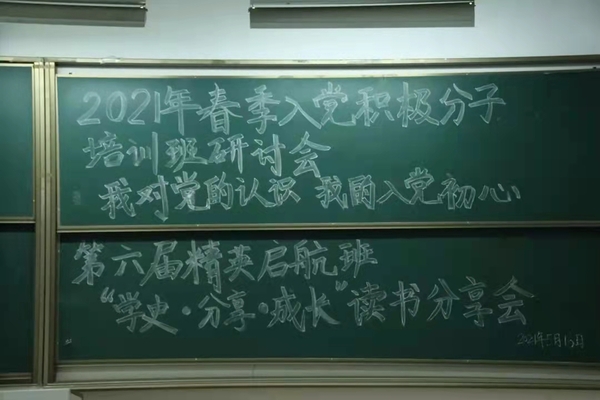 2021年春季入党积极分子
培训班研讨会
我对党的认识 我的入党初心
第六届精英启航班
“学史·分享·成长”读书分享会
2021年5月15日